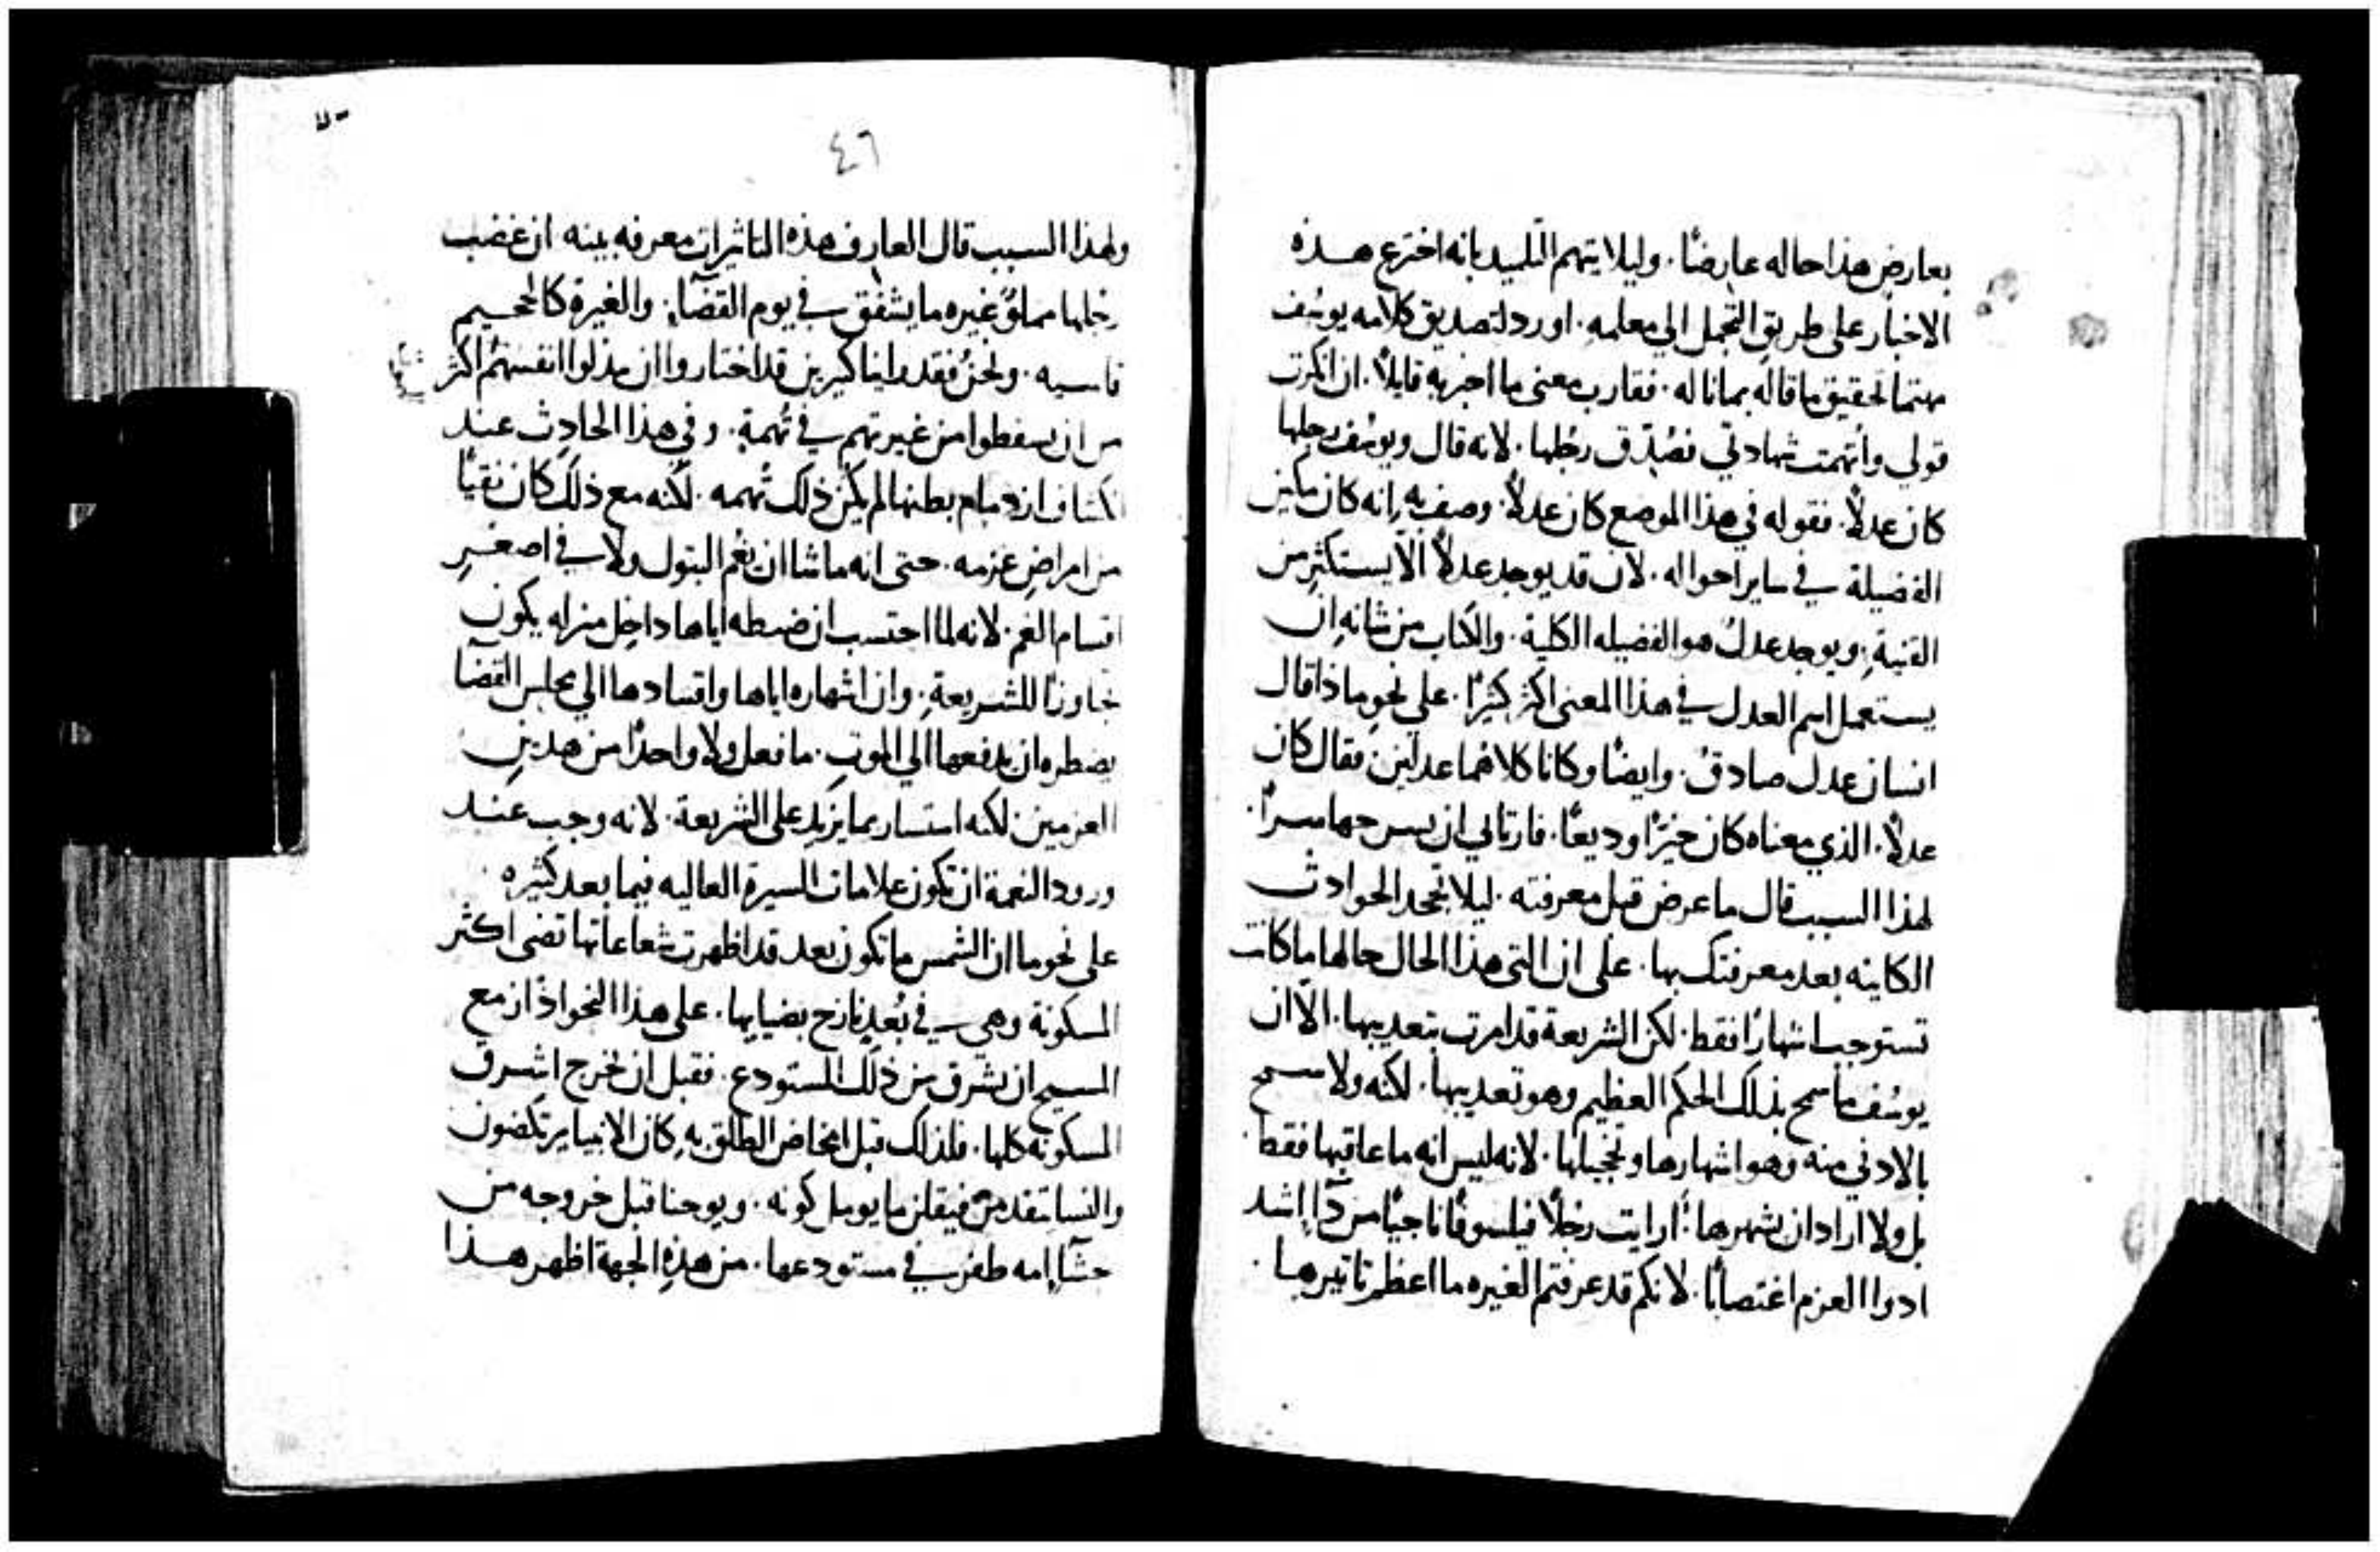 بعارض هذا حاله عارضًا. وليلا يتهم التلميد بانه اخترع هذه
الاخبار على طريق التجمل الي معلمه. اورد لتصديق كلامه يوسُف
مهتما لتحقيق ما قاله بما ناله. فقارب معنى ما اخبر به قايلاً. ان انكرت
قولي واتهمت شهادتي فصُدِّق رجُلها. لانه قال ويوسُف رجلها
كان عدلاً. فقوله في هذا الموضع كان عدلاً. وصف به انه كان مكين
الفضيلة في ساير احواله. لان قد يوجد عدلاً الاّ يستكثر من
القنيةِ. ويوجد عدلٌ هو الفضيله الكلية. والكتاب من شانه ان
يستعمل اسم العدل في هذا المعنى اكثر كثيرًا. على نحو ماذا قال
انسان عدل صادقٌ. وايضًا وكانا كلاهُما عدلين فقال كان
عدلاً. الذي معناه كان خيّرًا وديعًا. فارتاي ان يسرحها سرًا.
لهذا السبب قال ما عرض قبل معرفته. ليلا تجحد الحوادث
الكاينه بعد معرفتك بها. على ان التي هذا الحال حالها ما كانت
تستوجب اشهارًا فقط. لكن الشريعة قد امرت بتعديبها. الاّ ان
يوسُف ما سمح بذلك الحكم العظيم وهو تعديبها. لكنه ولا سمح
بالادني منه وهو اشهارها وتخجيلها. لانه ليس انه ما عاقبها فقط.
بل ولا اراد ان يشهرها. أرايت رجلاً فيلسوفًا ناجيًا من دآءٍ اشد
ادوا العزم اغتصابًا. لانكم قد عرفتم الغيره ما اعظم تاتيرها.
٤٦
ولهذا السبب قال العارف هذه التاثيرات معرفه بينه ان غضب
رجلها مملوٌ غيره ما يشفق في يوم القضآءِ. والغيرة كالجحيم
قاسيه. ونحنُ فقد راينا كثيرين قد اختاروا ان يبذلوا انفسهُم اكثر
من ان يسقطوا من غيرتهم في تُهمةٍ. وفي هذا الحادِث عند
انكشاف ازدحام بطنها لم يكن ذلك تُهمه. لكنه مع ذلك كان نقيًا
من امراض عزمه. حتى انه ما شا ان يغُم البتول ولا في اصغر
اقسام الغم. لانه لما احتسب ان ضبطه اياها داخِل منزله يكون
تجاوزًا للشريعةِ. وان اشهاره اياها واقتيادها الي مجلس القضآ
يضطره ان يدفعها الي الموت. ما فعل ولا واحدًا من هدينِ
العزمين. لكنه استسار بما يزيد على الشريعة. لانه وجب عند
ورود النعمة ان تكون علامات السيرة العاليه فيما بعد كثيره.
على نحو ما ان الشمس ما تكون بعد قد اظهرت شعاعاتها تضى اكثر
المسكونة وهي في بُعدٍ نازح بضيايها. على هذا النحو اذ ازمع
المسيح ان يشرق من ذلك المستودع. فقبل ان يخرج اشرف
المسكونة كلها. فلذلك قبل امخاض الطلق به كان الانبيا يرتكضون
والنسا يتقدمن فيقلن ما يومل كونه. ويوحنا قبل خروجه من
حشآءِ امه طفر في مستودعها. من هذه الجهة اظهر هذا